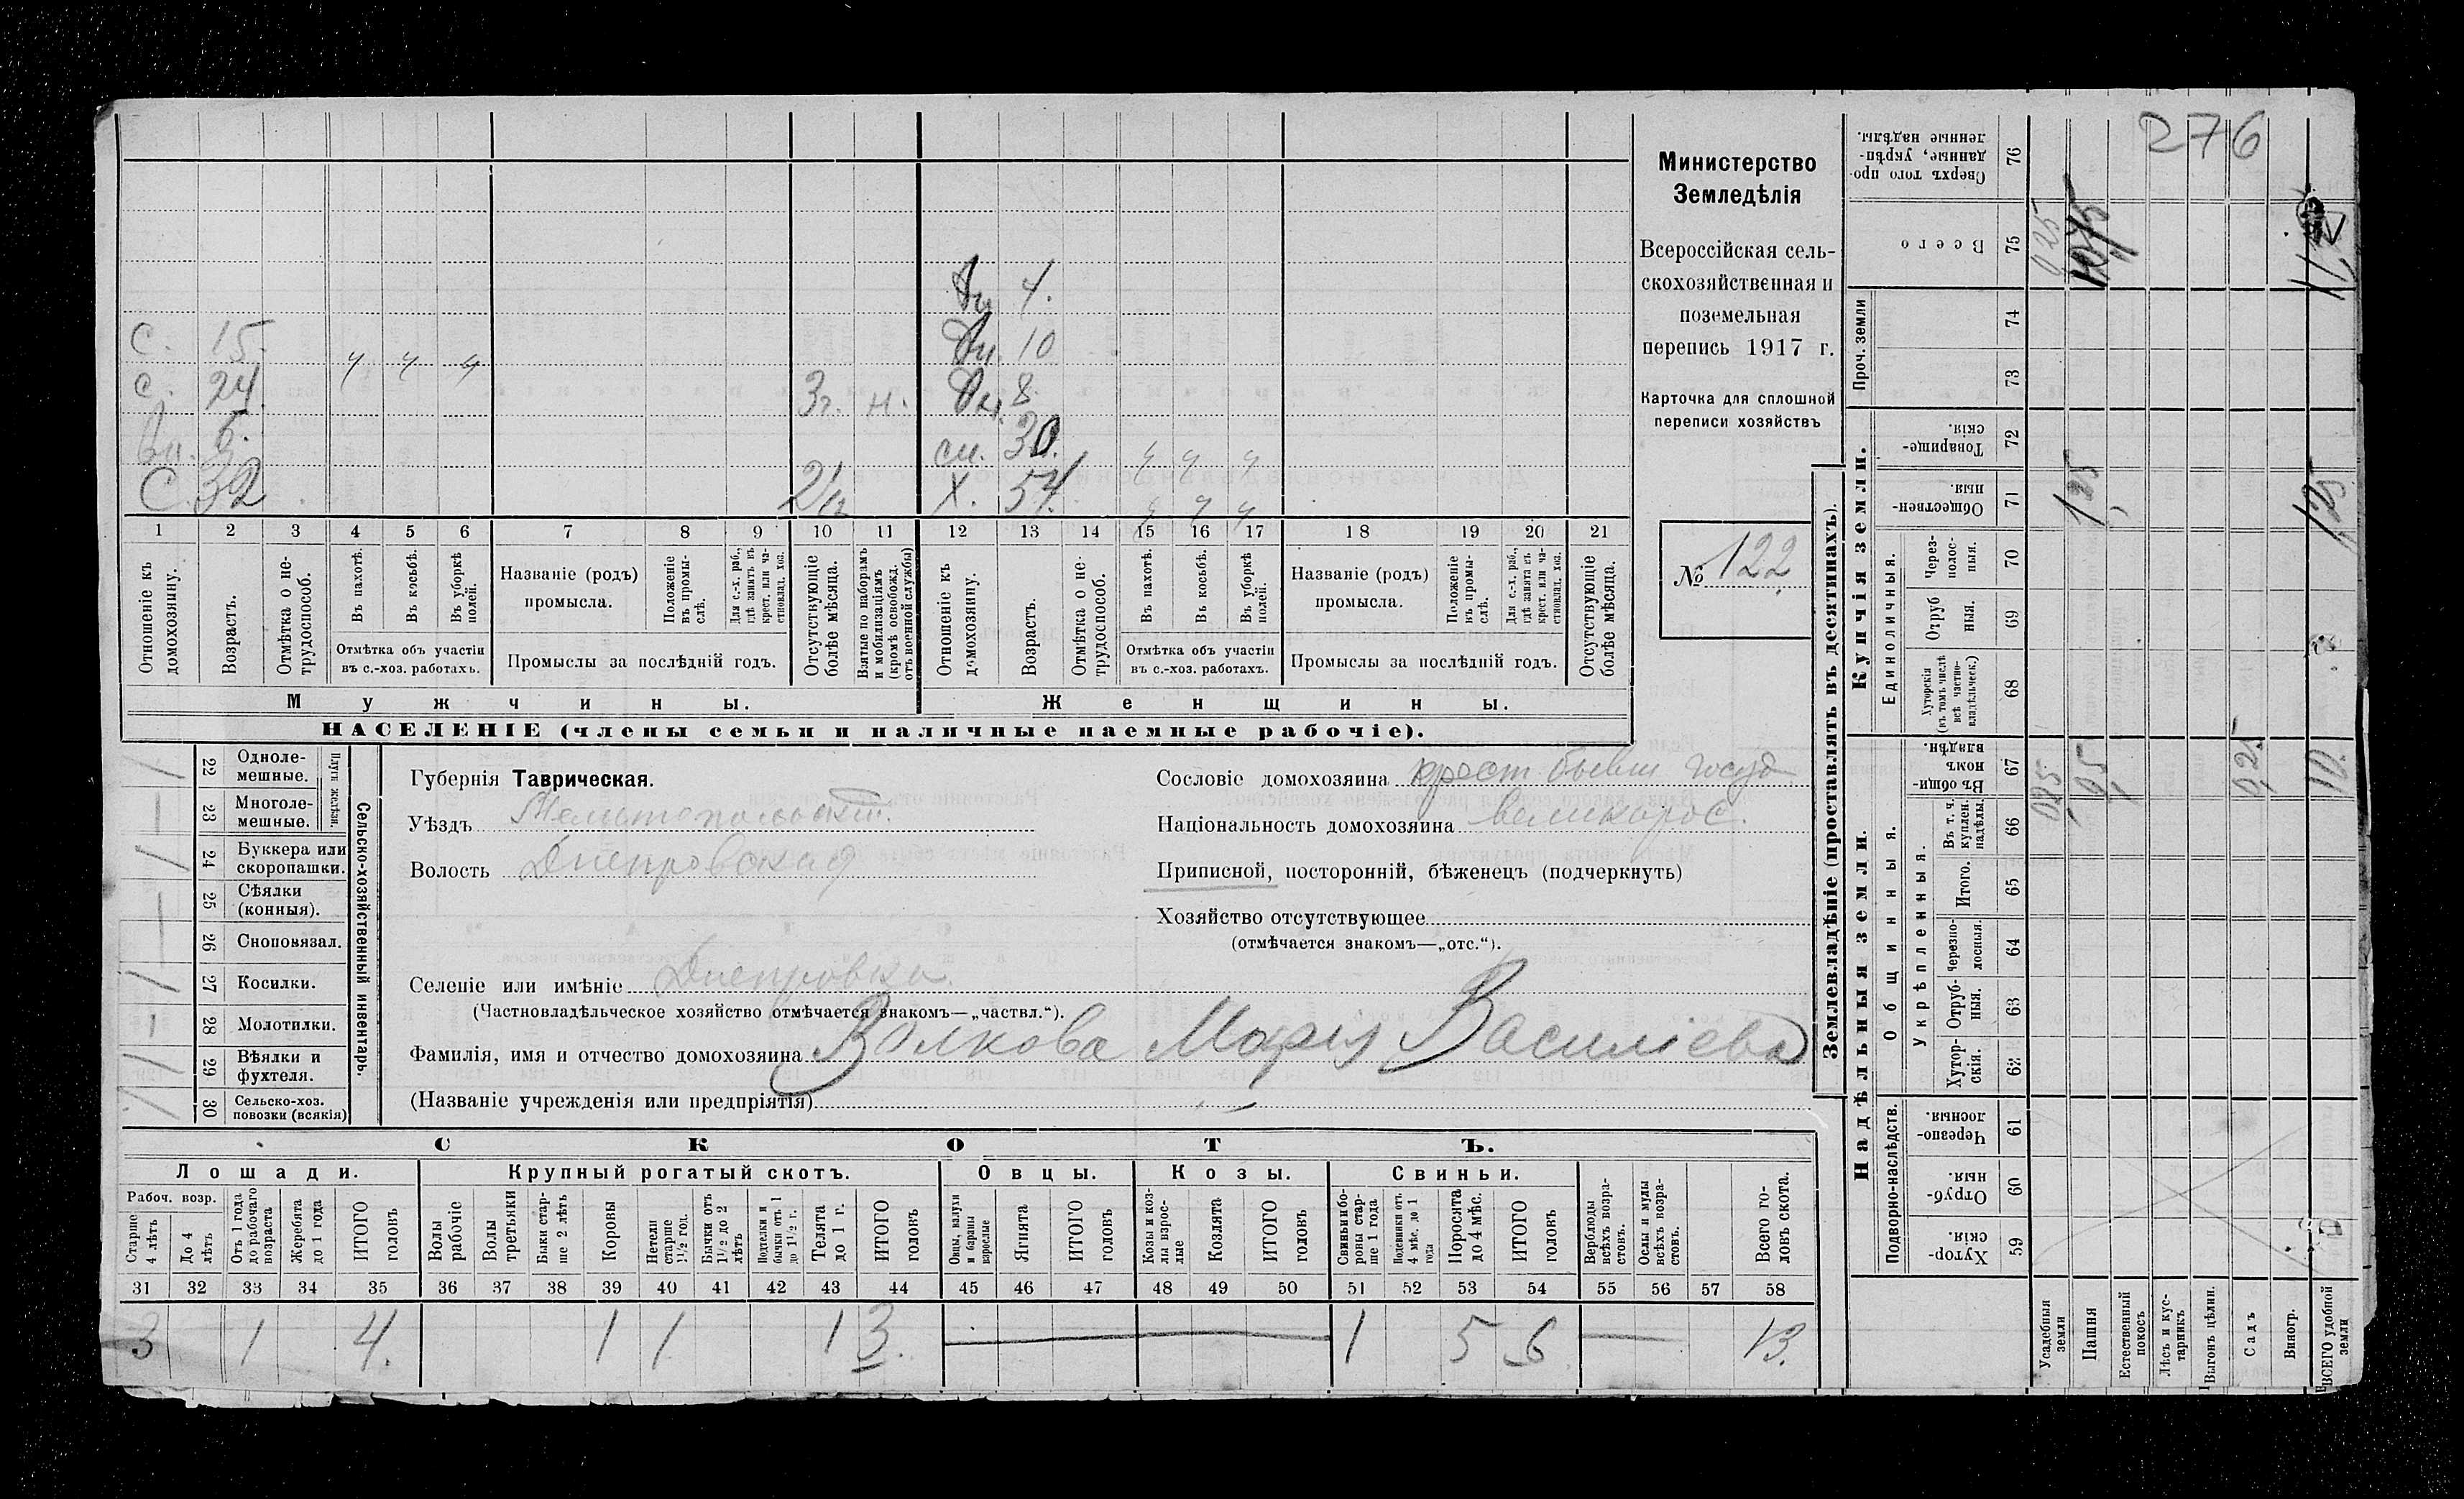 276
Министерство
Земледѣлія
Всероссійская сель-
скохозяйственная и
поземельная
перепись 1917 г.
Карточка для сплошной
переписи хозяйствъ
№ 122
Дч. 4.
С. 15. Дч. 10
ч ч ч
С. 24. 3г. н. Дч. 8
Вн. 6. сн. 30. ч ч ч
С. 32 Х. 54. ч ч ч
1 2 3 4 5 6 7 8 9 10 11 12 13 14 15 16 17 18 19 20 21
Отношеніе къ домохозяину.
Возрастъ.
Отмѣтка о не-трудоспособ.
Въ пахотѣ.
Въ косьбѣ.
Въ уборкѣ полей.
Отмѣтка объ участіи
въ с.-хоз. работахъ.
Названіе (родъ)
промысла.
Положеніе въ промы-слѣ.
Для с.-х. раб., гдѣ занятъ въ крест. или ча-стновлад. хоз.
Промыслы за послѣдній годъ.
Отсутствующіе болѣе мѣсяца.
Взятые по наборамъ и мобилизаціямъ (кромѣ освобожд. отъ военной службы)
Отношеніе къ домохозяину.
Возрастъ.
Отмѣтка о не-трудоспособ.
Въ пахотѣ.
Въ косьбѣ.
Въ уборкѣ полей.
Отмѣтка объ участіи
въ с.-хоз. работахъ.
Названіе (родъ)
промысла.
Положеніе въ промы-слѣ.
Для с.-х. раб., гдѣ занята въ крест. или ча-стновлад. хоз.
Промыслы за послѣдній годъ.
Отсутствующіе болѣе мѣсяца.
Мужчины. Женщины.
НАСЕЛЕНІЕ (члены семьи и наличные наемные рабочіе).
Сельско-хозяйственный инвентарь.
Плуги желѣзн.
1 22 Одноле-мешные.
— 23 Многоле-мешные.
1 24 Буккера или скоропашки.
— 25 Сѣялки (конныя).
— 26 Сноповязал.
1 27 Косилки.
— 28 Молотилки.
1 29 Вѣялки и фухтеля.
30 Сельско-хоз. повозки (всякія)
Губернія Таврическая.
Уѣздъ Мелитопольскій.
Волость Днепровская
Селеніе или имѣніе Днепровка
(Частновладѣльческое хозяйство отмѣчается знакомъ—„частвл.“).
Фамилія, имя и отчество домохозяина Волкова Марія Василіева
(Названіе учрежденія или предпріятія)
Сословіе домохозяина крест. бывш госуд
Національность домохозяина великорос.
Приписной, посторонній, бѣженецъ (подчеркнуть)
Хозяйство отсутствующее
(отмѣчается знакомъ—„отс.“).
СКОТЪ.
Лошади. Крупный рогатый скотъ. Овцы. Козы. Свиньи.
Рабоч. возр.
Старше 4 лѣтъ
До 4 лѣтъ
Отъ 1 года до рабочаго возраста
Жеребята до 1 года
ИТОГО головъ
Волы рабочіе
Волы третьяки
Быки стар-ше 2 лѣтъ
Коровы
Нетели старше 1½ год.
Бычки отъ 1½ до 2 лѣтъ
Подтелки и бычки отъ 1 до 1½ г.
Телята до 1 г.
ИТОГО головъ
Овцы, валухи и бараны взрослые
Ягнята
ИТОГО головъ
Козы и коз-лы взрос-лые
Козлята
ИТОГО головъ
Свиньи и бо-ровы стар-ше 1 года
Подсвинки отъ 4 мѣс. до 1 года
Поросята до 4 мѣс.
ИТОГО головъ
Верблюды всѣхъ возра-стовъ.
Ослы и мулы всѣхъ возра-стовъ.
Всего го-ловъ скота.
31 32 33 34 35 36 37 38 39 40 41 42 43 44 45 46 47 48 49 50 51 52 53 54 55 56 57 58
3 1 4. 1 1 1 3. 1 5 6 13.
Землевладѣніе (проставлять въ десятинахъ).
Купчія земли.
Надѣльныя земли.
Сверхъ того про-данные, укрѣп-ленные надѣлы. 76
Всего 75 0,25
Проч. земли 74
73
Товарище-скія. 72
Обществен-ныя. 71 1,25 1,25
Единоличныя.
Через-полос-ныя. 70
Отруб ныя. 69
Хуторскія (въ томъ числѣ всѣ частно-владѣльческ.) 68
Общинныя.
Въ общи-номъ владѣн. 67 0,25 9,5 0,25 10.
Укрѣпленныя.
Въ т. ч. куплен. надѣлы. 66
Итого. 65
Черезпо-лосныя. 64
Отруб-ныя. 63
Хутор-скія. 62
Подворно-наслѣдств.
Черезпо-лосныя. 61
Отруб-ныя. 60
Хутор-скія. 59
Усадебныя земли
Пашня
Естественный покосъ
Лѣсъ и кус-тарникъ
Выгонъ цѣлин.
Садъ
Виногр.
ВСЕГО удобной земли